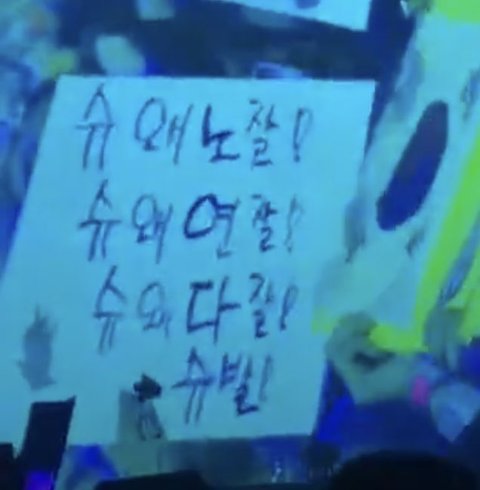 슈 왜 노잘!
슈 왜 연잘!
슈 왜 다잘!
슈벌!